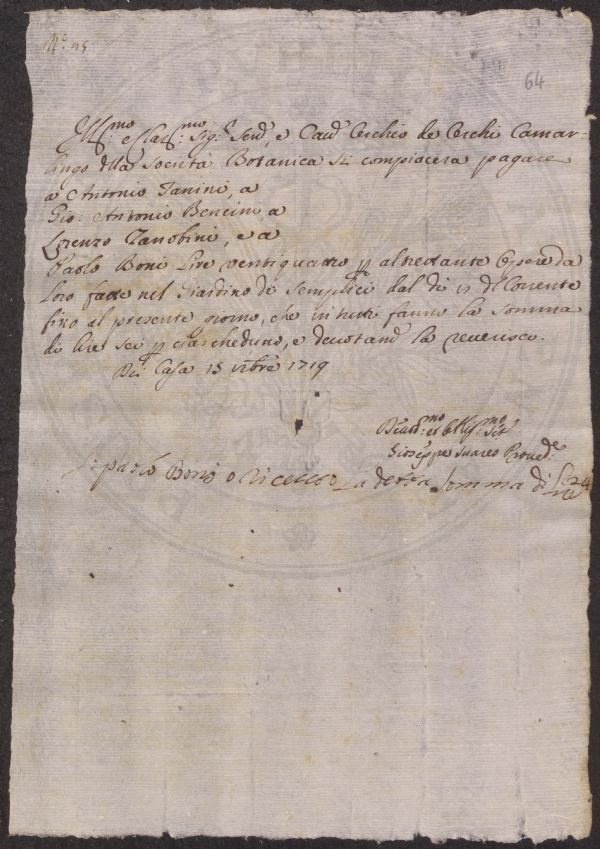 N.° 95
64
Ill.mo e Clar.mo Sig.r Sen.r, e Cav.r Cerchio de Cerchi Camar=
lingo della Società Botanica si compiacerà pagare
a Antonio Zanini, a
Gio: Antonio Bencini, a
Lorenzo Zanobini, e a
Paolo Boni Lire ventiquattro p altretante Opere da
loro fatte nel Giardino de Semplici dal di 12 del Corrente
fino al presente giorno, che in tutti fanno la somma
di lire sei p ciascheduno, e devotam.te la reverisco.
Di Casa 15 1719
Dev.mo et Obblig.mo Ser.
Gioseppe Suares Proved.re
Io paolo Boni o Ricetto La detta somma di L 24